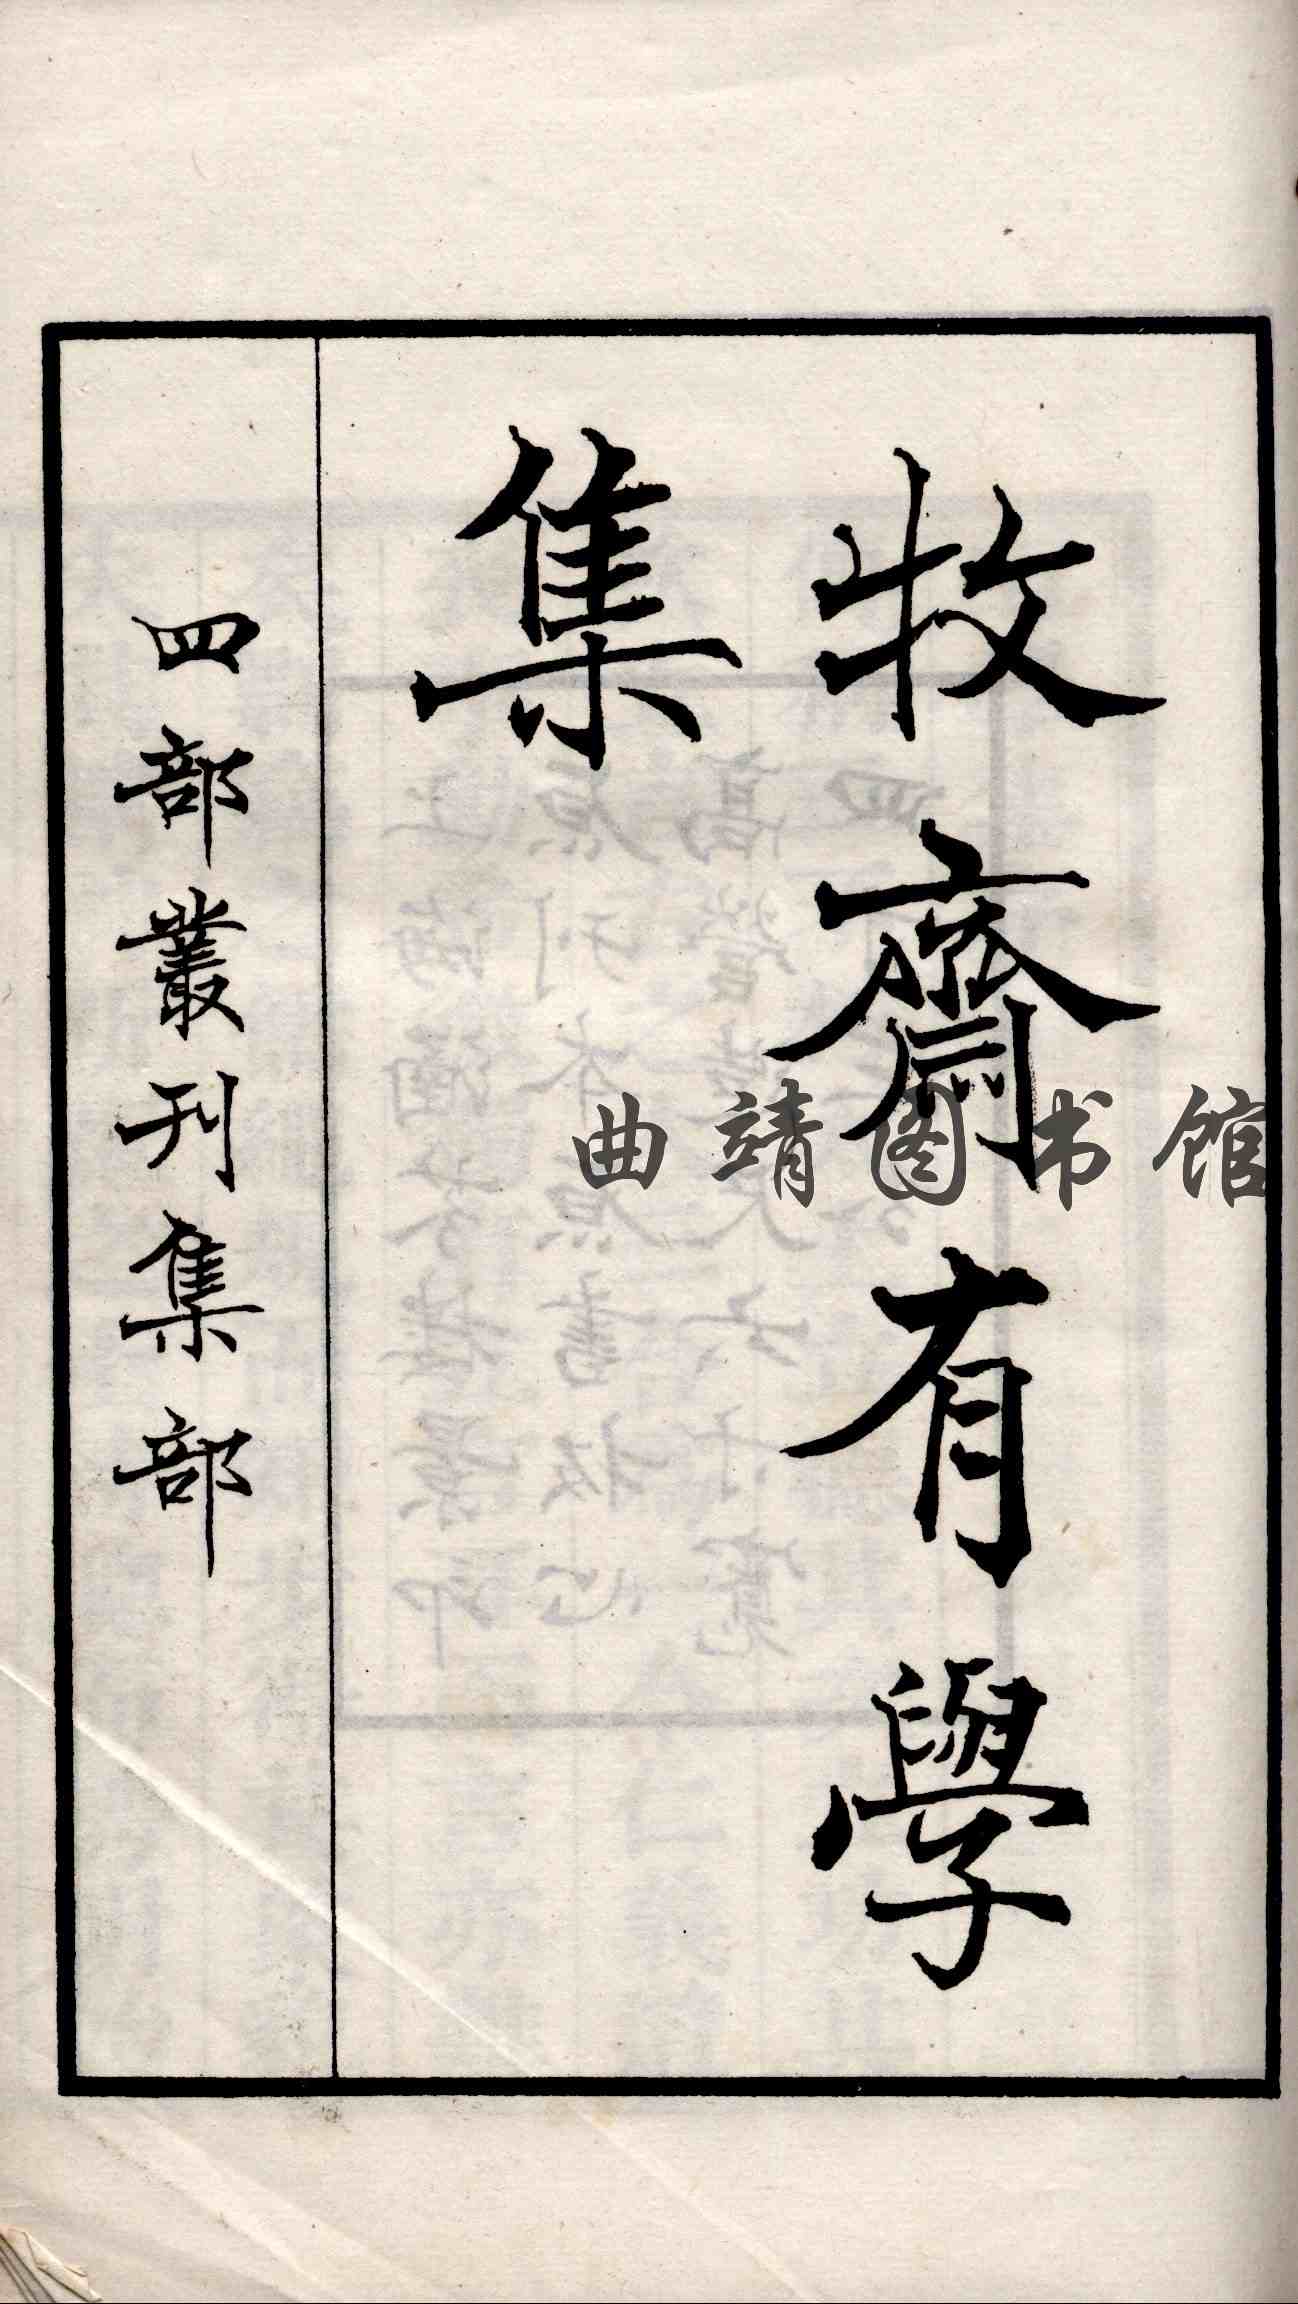 牧齋有學
集
四部叢刊集部
曲靖图书馆